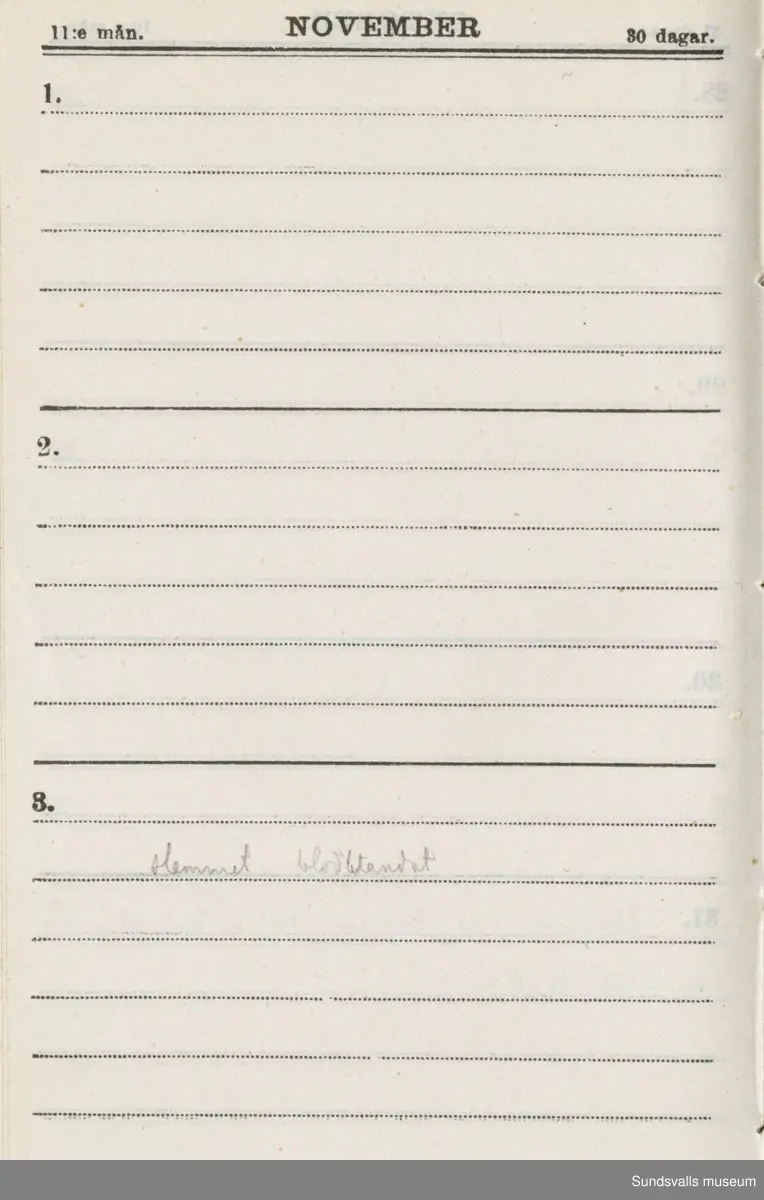 11:e mån. NOVEMBER 30 dagar.
1.
2.
3.
slemmet blodblandat
Sundsvalls museum